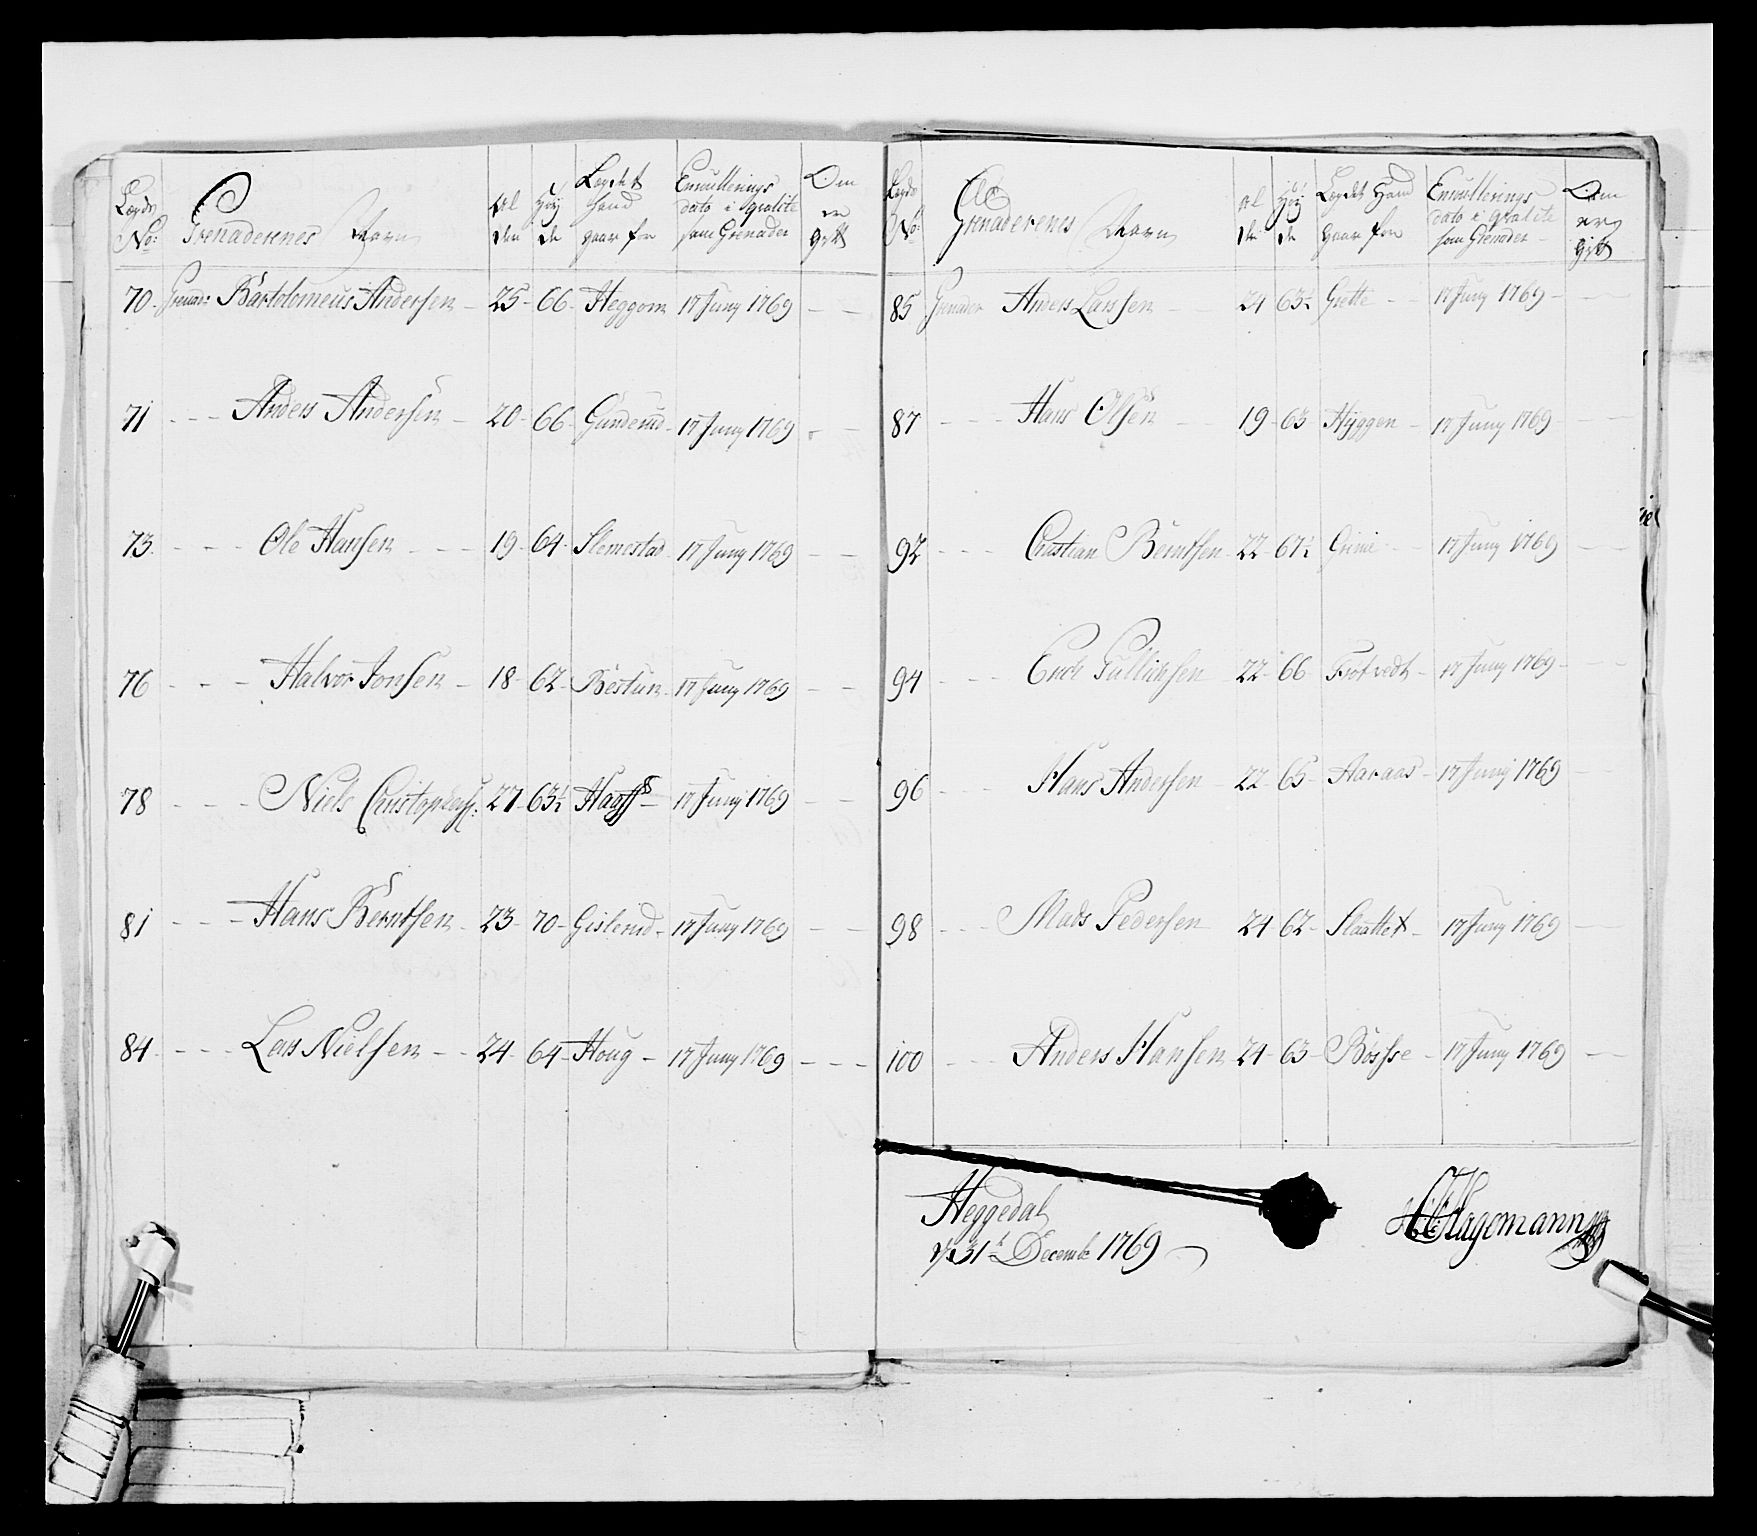 Lægds No: Grenaderenes Navn Al der Høy de Lægdet hand gaar for Enrullerings dato i qvalite som Grenader Om er gift
70 Grenad: Bartolomeus Andersen - 25 - 66 - Heggom 17 Juny 1769 - -
71 - - - Anders Andersen - 20 - 66 - Gunderud - 17 Juny 1769 - -
73 - - - Ole Hansen - - - 19 - 64 - Slemestad 17 Juny 1769 - -
76 - - - Halvor Jonsen - 18 - 62 - Bestum - 17 Juny 1769 - -
78 - - - Niels 27 - 63½ 17 Juny 1769 - -
81 - - - Hans Berntsen - 23 - 70 - Gislerud - 17 Juny 1769 - -
84 - - - Lars Nielsen - - 24 - 64 - Houg - 17 Juny 1769 - - -
Lægds No: Grenaderenes Navn Al der Høy de Lægdet Hand gaar for Enrullerings dato i qvalite som Grenader Om er gift
85 Grenader Anders Larssen - 24 63½ Grette - - 17 Juny 1769 - -
87 - - - Hans Olsen - 19 - 63 Hyggen - 17 Juny 1769 -
92 - - - Christian Berntsen 22 - 67½ Grini - - 17 Juny 1769 - -
94 - - - Erick Gullichsen 22 - 66 17 Juny 1769 - - -
96 - - - Hans Andersen - 22 - 65 - Aaraas - 17 Juny 1769 - -
98 - - - Mads Pedersen 24 - 62 - Slaattet - 17 Juny 1769 - -
100 - - - Anders Hansen 24 - 63 - Bøsse - 17 Juny 1769 - -
Heggedal
d 31te Decembr 1769
Hagemann